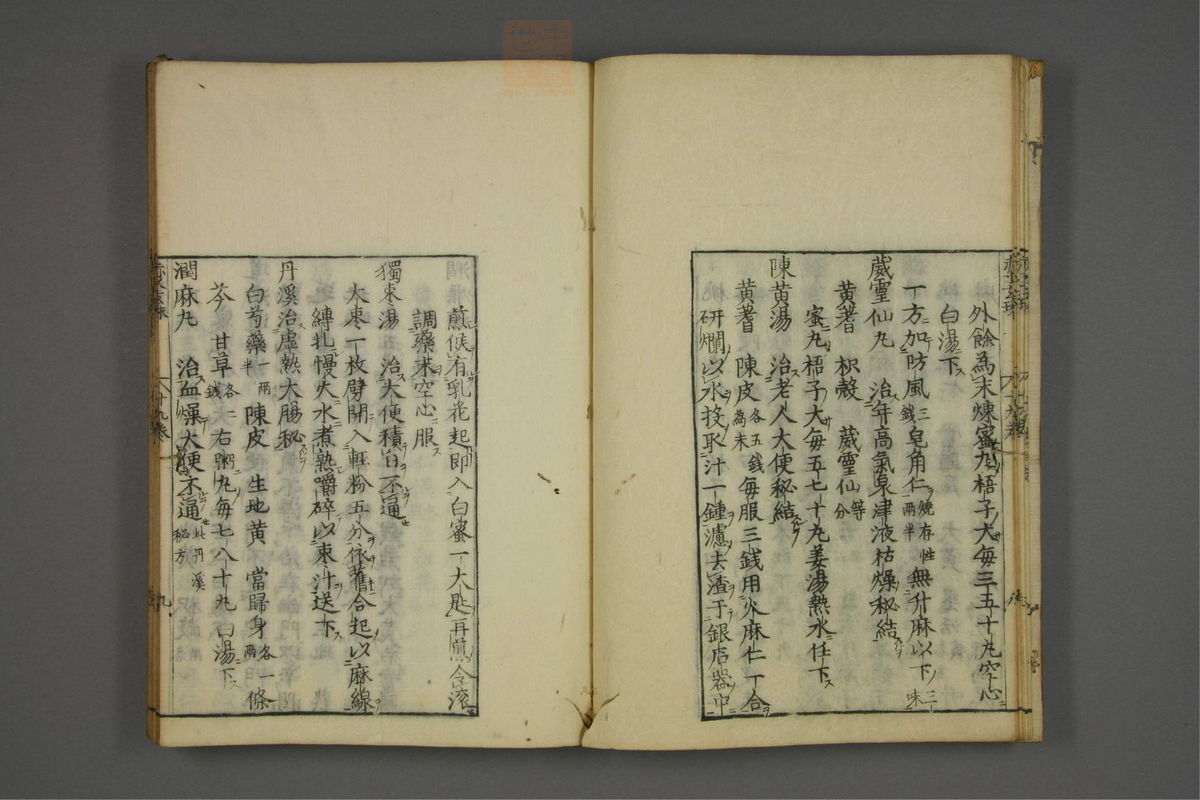 外餘為末煉蜜丸梧子大毎三五十丸空心
白湯下
一方加防風三錢皂角仁燒存性兩半無升麻以下三味
葳靈仙丸 治年高氣衰津液枯燥秘結
黄蓍 枳殻 葳靈仙等分
蜜丸梧子大毎五七十丸姜湯熱水任下
陳黄湯 治老人大便秘結
黄蓍 陳皮各五錢為末毎服三錢用火麻仁一合
研爛以水投取汁一鍾濾去渣于銀石器中
煎候有乳花起即入白蜜一大匙再煎令滾
調藥末空心服
獨枣湯 治大便積日不通
大枣一枚劈開入輕粉五分依舊合起以麻線
縛扎慢火水煮熟嚼碎以枣汁送下
丹溪治虚熱大腸秘
白芍藥一兩半陳皮 生地黄 當歸身各一兩條
芩 甘草各二錢右粥丸毎七八十丸白湯下
潤麻丸 治血燥大便不通此丹溪秘方